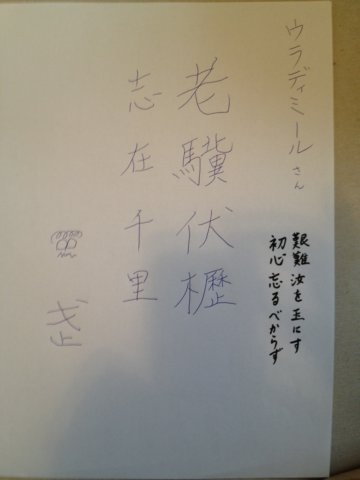 ウラディミールさん
艱難汝を玉にす
初心忘るべからず
老驥伏櫪
志在千里